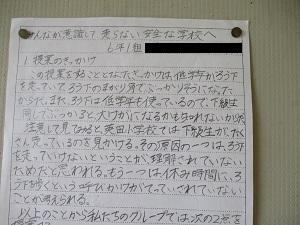 みんなが意識して走らない安全な学校へ
6年1組
1. 提案のきっかけ
この提案をすることとなったきっかけは、低学年がろう下
を走っていて、ろう下のまがり角でぶっかりそうになった
からだ。また、ろう下は低学年も使っているので、下級生
同してぶっかると、大けがになるかも知れないから
注意して見てみると、英田小学校では下級生がたく
さん走っているのを見かける。その原因の一つは、ろう下
を走っていけないということが理解されていない
ためだと思われる。もう一つは休み時間に、ろ
う下を歩くという呼びかけがてっていされていない
ことが考えられる。
以上のことから私たちのグループでは次の2点を